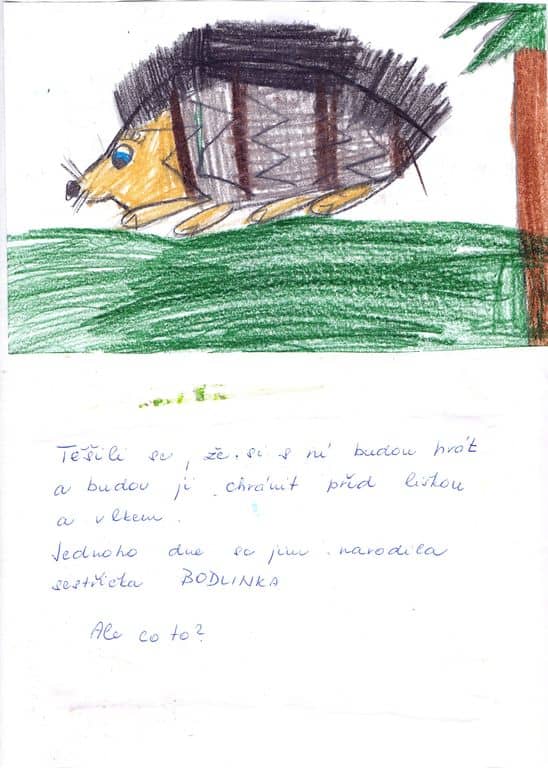 Těšili se, že si s ní budou hrát
a budou ji chránit před liškou
a vlkem.
Jednoho dne se jim narodila
sestřička BODLINKA
Ale co to?